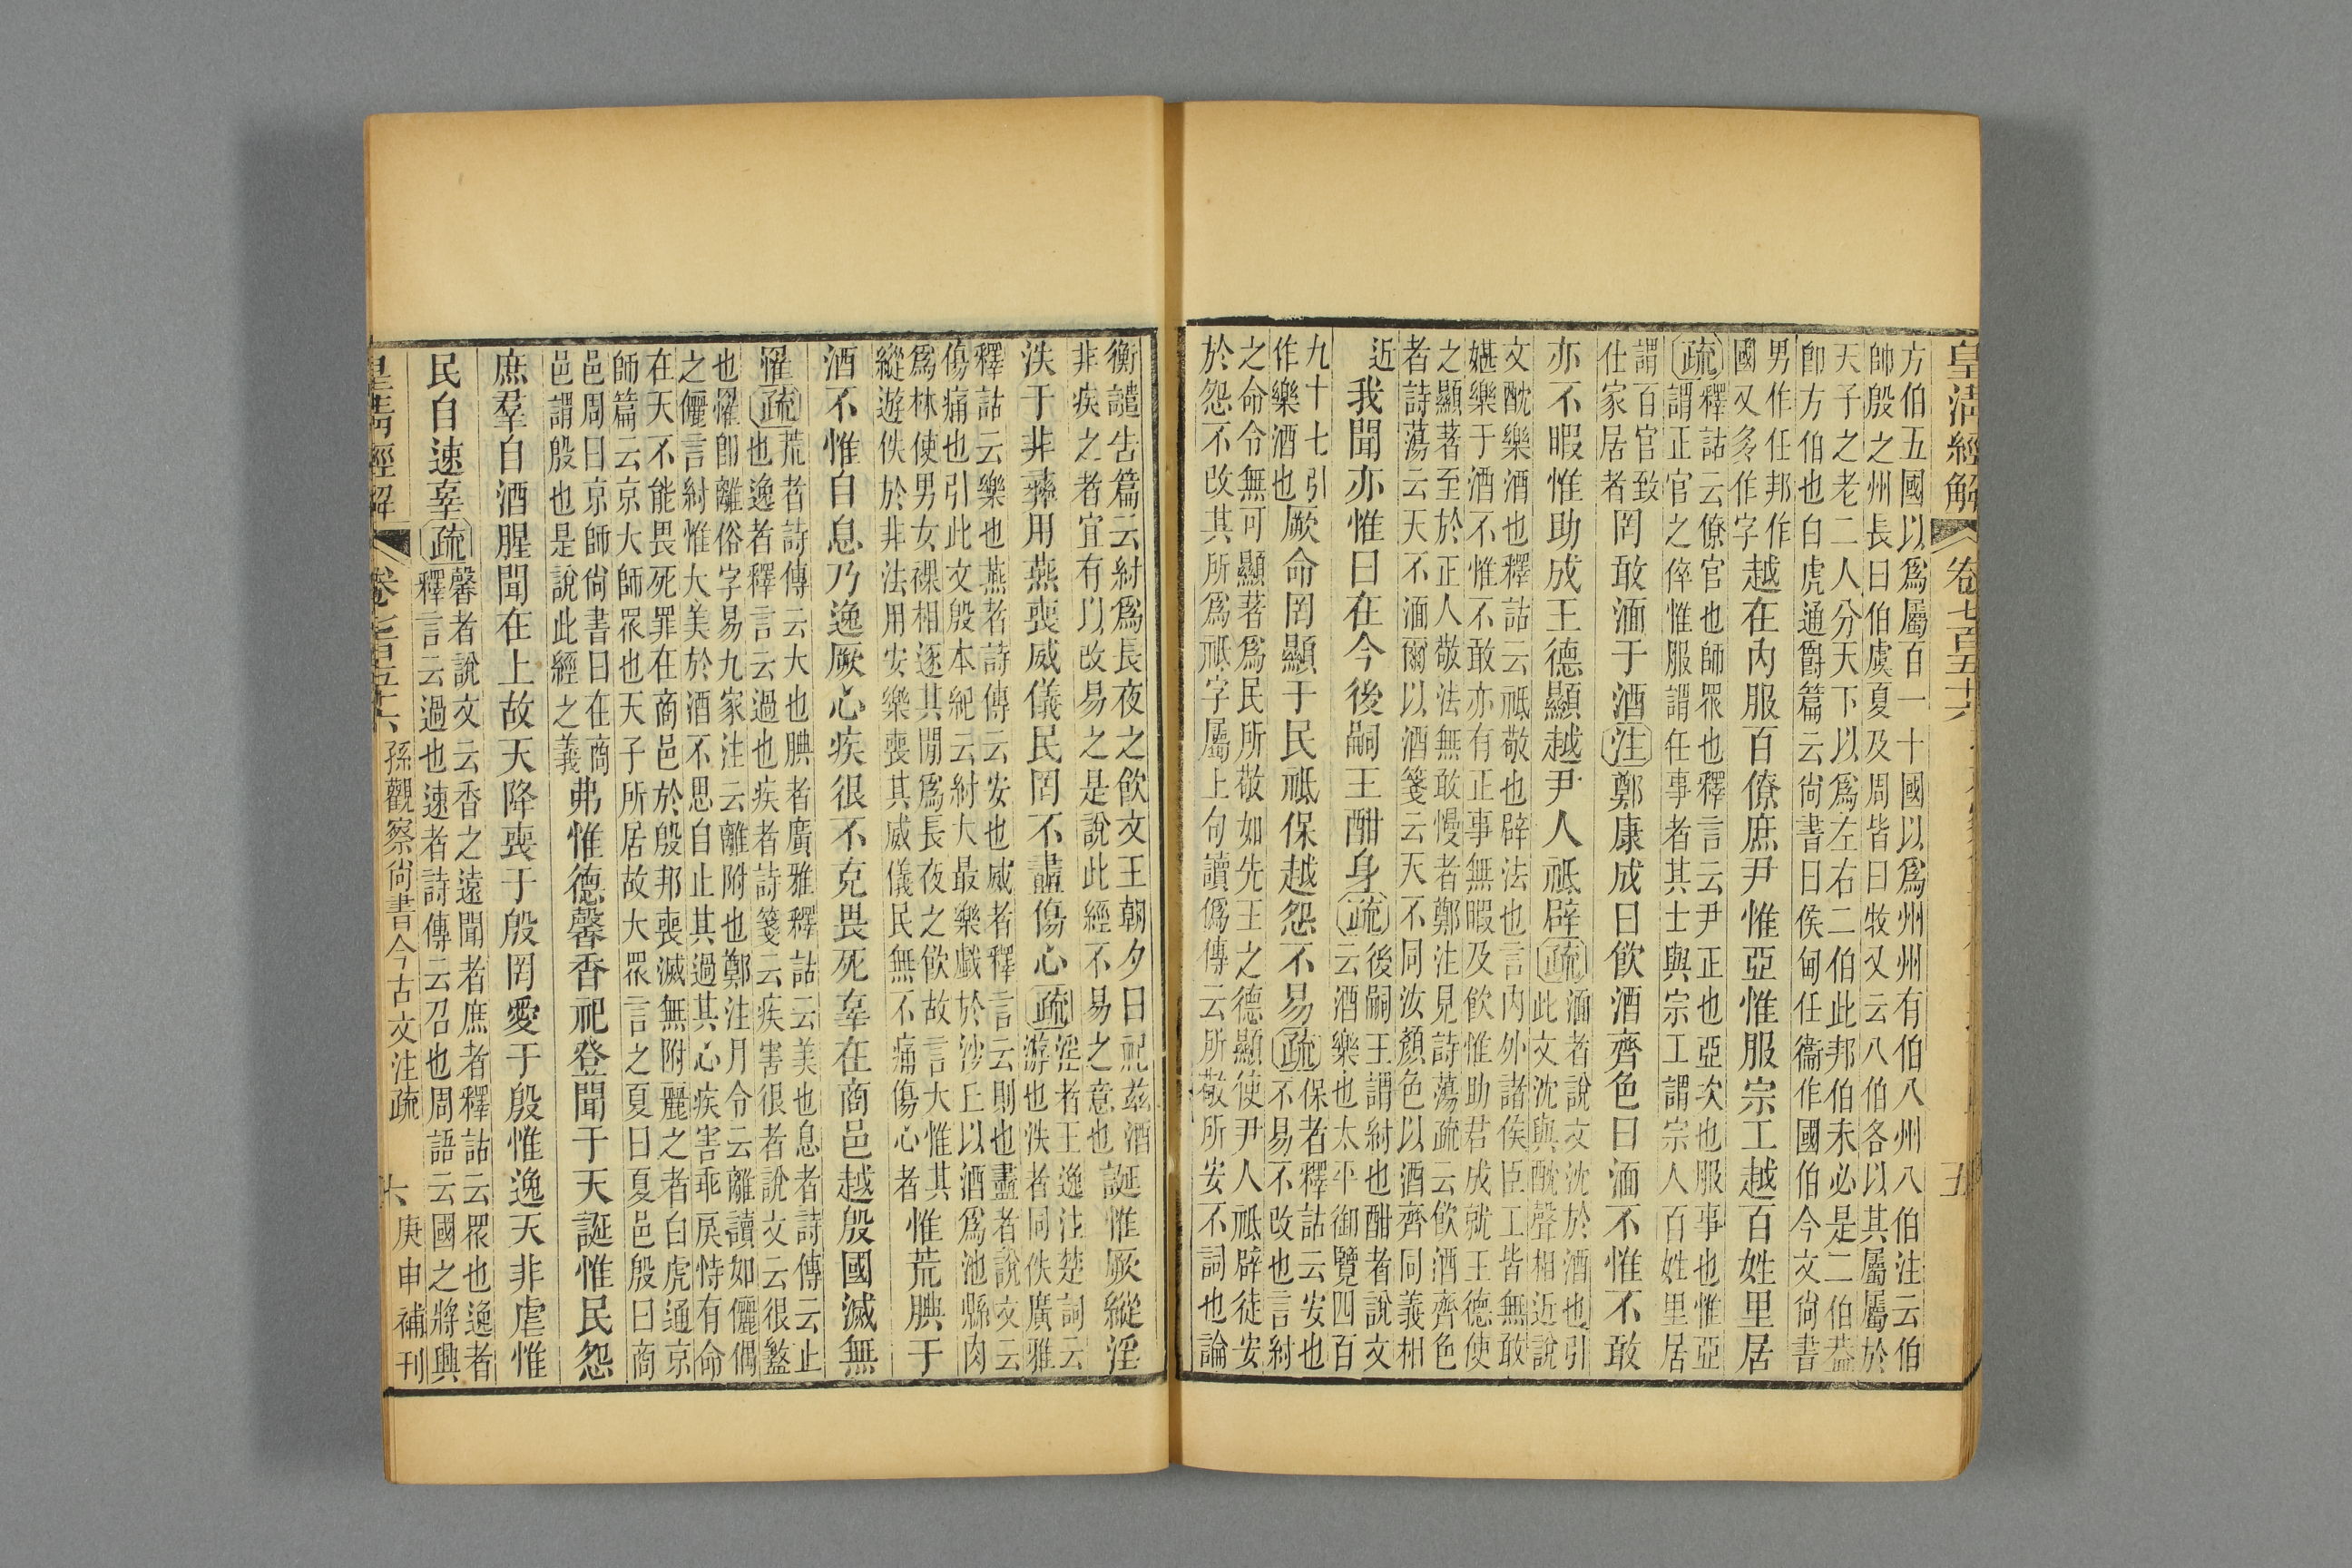 皇清經解
卷七百五十六
五
方伯五國以爲屬百一十國以爲州州有伯八州八伯注云伯
帥殷之州長曰伯虞夏及周皆曰牧又云八伯各以其屬屬於
天子之老二人分天下以爲左右二伯此邦伯未必是二伯葢
卽方伯也白虎通爵篇云尚書曰侯甸任衞作國伯今文尚書
男作任邦作
國又多作字
越在內服百僚庶尹惟亞惟服宗工越百姓里居
疏
釋詁云僚官也師眾也釋言云尹正也亞次也服事也惟亞
謂正官之倅惟服謂任事者其士與宗工謂宗人百姓里居
謂百官致
仕家居者
罔敢湎于酒注鄭康成曰飲酒齊色曰湎不惟不敢
亦不暇惟助成王德顯越尹人祗辟疏
湎者說文沈於酒也引
此文沈與酖聲相近說
文酖樂酒也釋詁云祗敬也辟法也言內外諸侯臣工皆無敢
媅樂于酒不惟不敢亦有正事無暇及飲惟助君成就王德使
之顯著至於正人敬法無敢慢者鄭注見詩蕩疏云飲酒齊色
者詩蕩云天不湎爾以酒箋云天不同汝顏色以酒齊同義相
近
我聞亦惟曰在今後嗣王酣身疏
後嗣王謂紂也酣者說文
云酒樂也太平御覽四百
九十七引
作樂酒也
厥命罔顯于民祗保越怨不易疏
保者釋詁云安也
不易不改也言紂
之命令無可顯著爲民所敬如先王之德顯使尹人祗辟徒安
於怨不改其所爲祗字屬上句讀僞傳云所敬所安不詞也論
衡譴告篇云紂爲長夜之飲文王朝夕曰祀茲酒
非疾之者宜有以改易之是說此經不易之意也
誕惟厥縱淫
泆于非彝用燕喪威儀民罔不衋傷心疏
淫者王逸注楚詞云
游也泆者同佚廣雅
釋詁云樂也燕者詩傳云安也威者釋言云則也衋者說文云
傷痛也引此文殷本紀云紂大最樂戲於沙丘以酒爲池縣肉
爲林使男女裸相逐其閒爲長夜之飲故言大惟其
縱遊佚於非法用安樂喪其威儀民無不痛傷心者
惟荒腆于
酒不惟自息乃逸厥心疾很不克畏死辜在商邑越殷國滅無
罹疏
荒者詩傳云大也腆者廣雅釋詁云美也息者詩傳云止
也逸者釋言云過也疾者詩箋云疾害很者說文云很盭
也罹卽離俗字易九家注云離附也鄭注月令云離讀如儷偶
之儷言紂惟大美於酒不思自止其過其心疾害乖戾恃有命
在天不能畏死罪在商邑於殷邦喪滅無附麗之者白虎通京
師篇云京大師眾也天子所居故大眾言之夏曰夏邑殷曰商
邑周曰京師尚書曰在商
邑謂殷也是說此經之義
弗惟德馨香祀登聞于天誕惟民怨
庶羣自酒腥聞在上故天降喪于殷罔愛于殷惟逸天非虐惟
民自速辜疏
馨者說文云香之遠聞者庶者釋詁云眾也逸者
釋言云過也速者詩傳云召也周語云國之將興
皇清經解
卷七百五十六
孫觀察尚書今古文注疏
六
庚申補刊